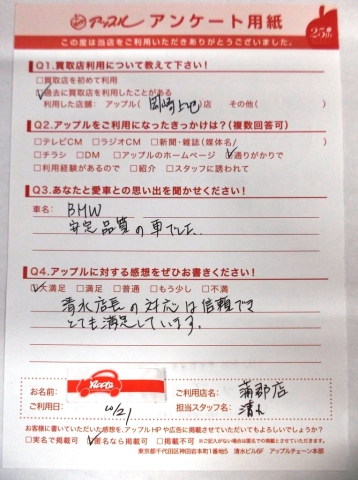 アップル アンケート用紙
25th
この度は当店をご利用いただきありがとうございました。
Q1.買取店利用について教えて下さい!
□買取店を初めて利用
□過去に買取店を利用したことがある
利用した店舗: アップル( 岡崎上地 )店 その他( )
Q2.アップルをご利用になったきっかけは?(複数回答可)
□テレビCM □ラジオCM □新聞・雑誌(媒体名/ )
□チラシ □DM □アップルのホームページ □通りがかりで
□利用経験があるので □紹介 □スタッフに誘われて
Q3.あなたと愛車との思い出を聞かせください!
車名: BMW
安定品質の車でした。
Q4.アップルに対する感想をぜひお書きください!
□大満足 □満足 □普通 □もう少し □不満
清水店長の対応は信頼でき
とても満足しています。
お名前: ご利用店名: 蒲郡店
ご利用日: 10/21 担当スタッフ名: 清水
お客様に書いていただいた感想を、アップルHPや広告に掲載させていただいてもよろしいでしょうか?
□実名で掲載可 □匿名なら掲載可 □掲載不可 ※ご記入がない場合は匿名での掲載とさせていただきます。
東京都千代田区神田岩本町1番地5 清水ビル6F アップルチェーン本部